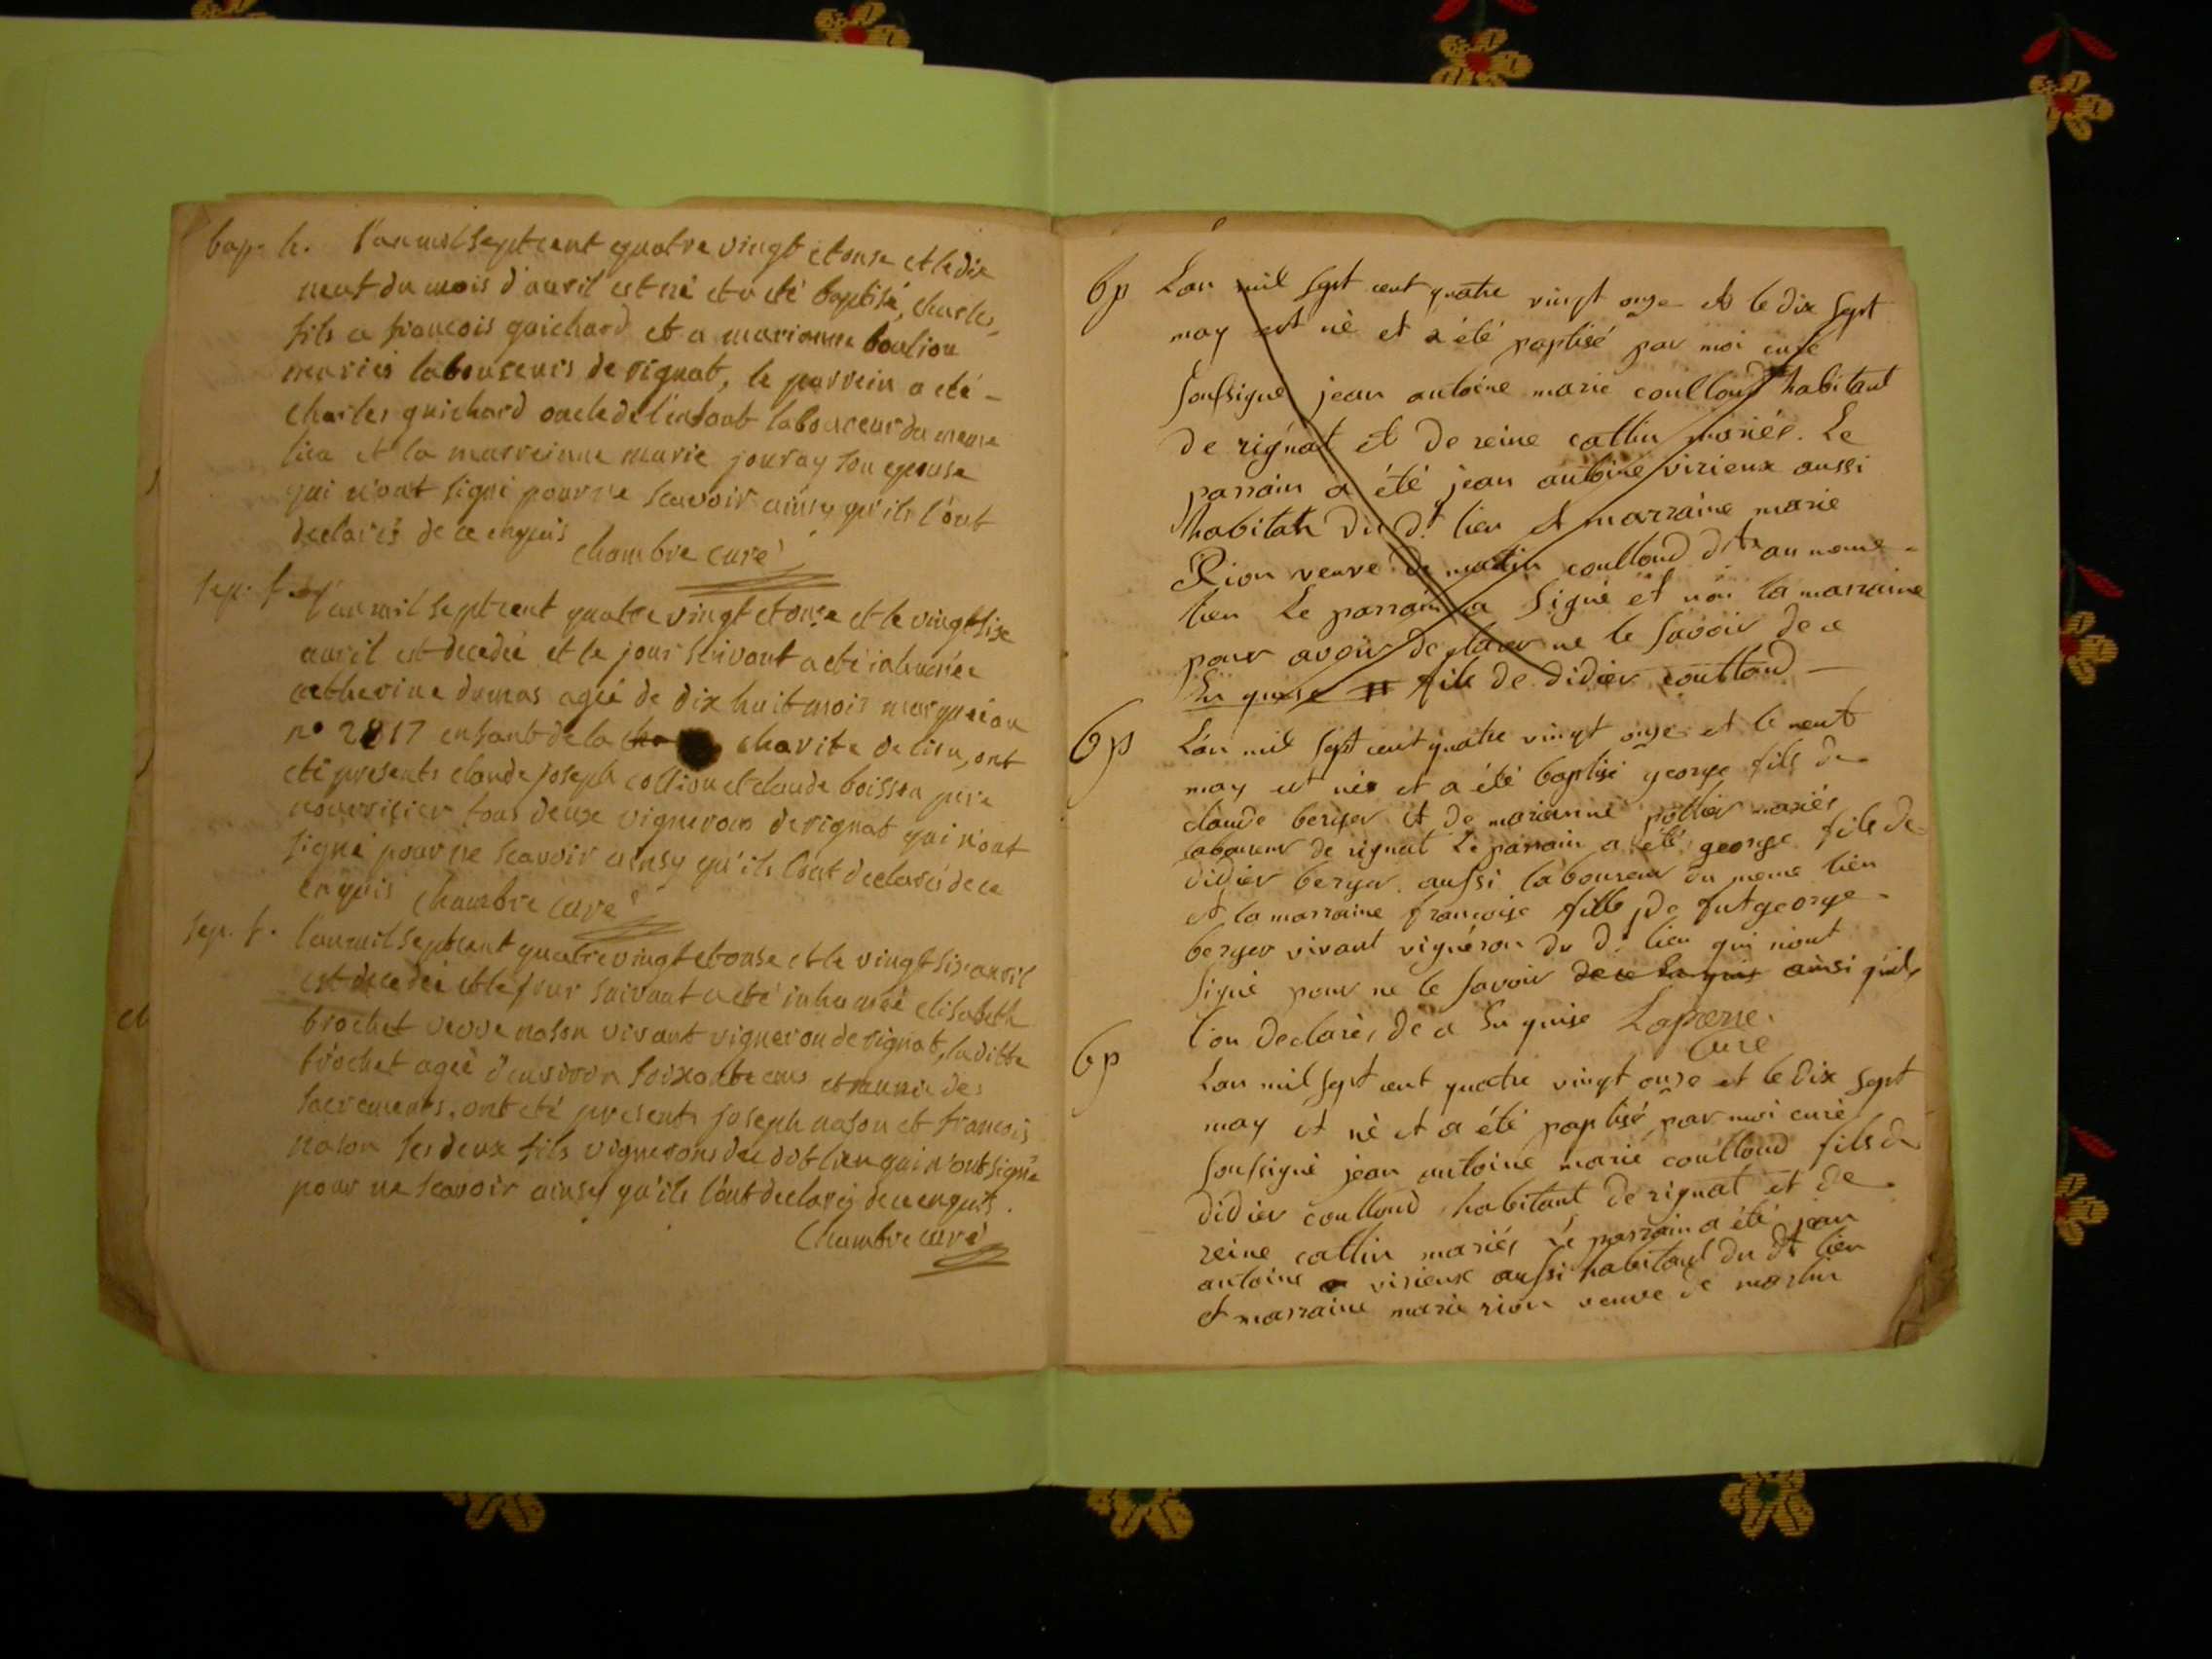 bap. h. l'an mil sept cent quatre vingt et onse et le dix
neuf du mois d'avril est né et a eté baptisé, charles,
fils a francois guichard et a marianne boulion
mariés laboureurs de rignat, le parrein a eté -
charles guichard oncle de l'enfant laboureur du meme
lieu et la marreinne marie jouray son epouse
qui n'ont signé pour ne scavoir ainsy qu'ils l'ont
declarés de ce enquis chambre curé
sep. f. l'an mil sept cent quatre vingt et onze et le vingt six
avril est decedée et le jour suivant a eté inhumée
catherine dumas agée de dix huit mois
n° 2817 enfant de la charité de lion, ont
eté presents claude joseph collion et claude boisson pere
nourricier tous deux vignerons de rignat qui n'ont
signé pour ne scavoir ainsy qu'ils l'ont declarés de ce
enquis chambre curé
sep. f. l'an mil sept cent quatre vingt et onse et le vingt six avril
est decedée et le jour suivant a eté inhumée elisabeth
brochet veuve nason vivant vigneron de rignat, la ditte
brochet agée d'environ soixante ans et munie des
sacrements. ont eté presents joseph nason et francois
nason ses deux fils vignerons du dit lieu qui n'ont signé
pour ne scavoir ainsy qu'ils l'ont declarés de ce enquis.
Chambre curé
bp Lan mil sept cent quatre vingt onze et le dix sept
may est né et a été paptisé par moi curé
soussigné jean antoine marie coulloud habitant
de rignat et de reine cattin mariés. Le
parrain a été jean antoine virieux aussi
habitant du dt lieu et marraine marie
Rion veuve de martin coulloud au meme -
lieu Le parrain a signé et non la marraine
pour avoir declarer ne le savoir de ce
En quise # fils de didier coulloud -
bp L'an mil sept cent quatre vingt onze et le neuf
may est né et a été baptisé george fils de
claude berger et de marianne pottier mariés
laboureur de rignat Le parrain a été george fils de
didier berger aussi laboureur du meme lieu
et la marraine francoise fille de fut george
berger vivant vigneron du dt lieu qui niont
signé pour ne le savoir de ce En quis ainsi quils
l'on declarés de ce En quise Laperre.
Curé
bp Lan mil sept cent quatre vingt onze et le dix sept
may et né et a été paptisé par moi curé
soussigné jean antoine marie coulloud fils de
didier coulloud habitant de rignat et de
reine cattin mariés Le parrain a été jean
antoine virieux aussi habitant du dt lieu
et marraine marie rion veuve de martin